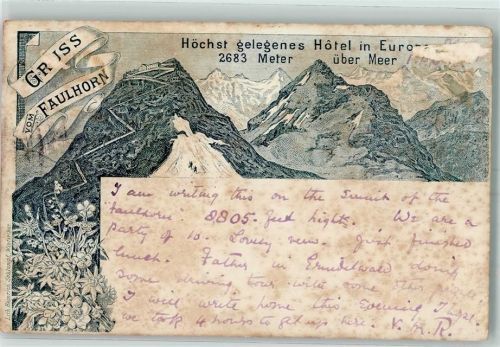 GRUSS
VOM FAULHORN
Höchst gelegenes Hôtel in Europa
2683 Meter über Meer
I am writing this on the Sumit of the
faulhorn. 8805. feet hight. We are a
party of 10. Lovely view. Just finished
lunch. Father in Grindelwald doing
some driving tour with some other people
I will write home this evening
we took 4 hours to get up here. V. R.